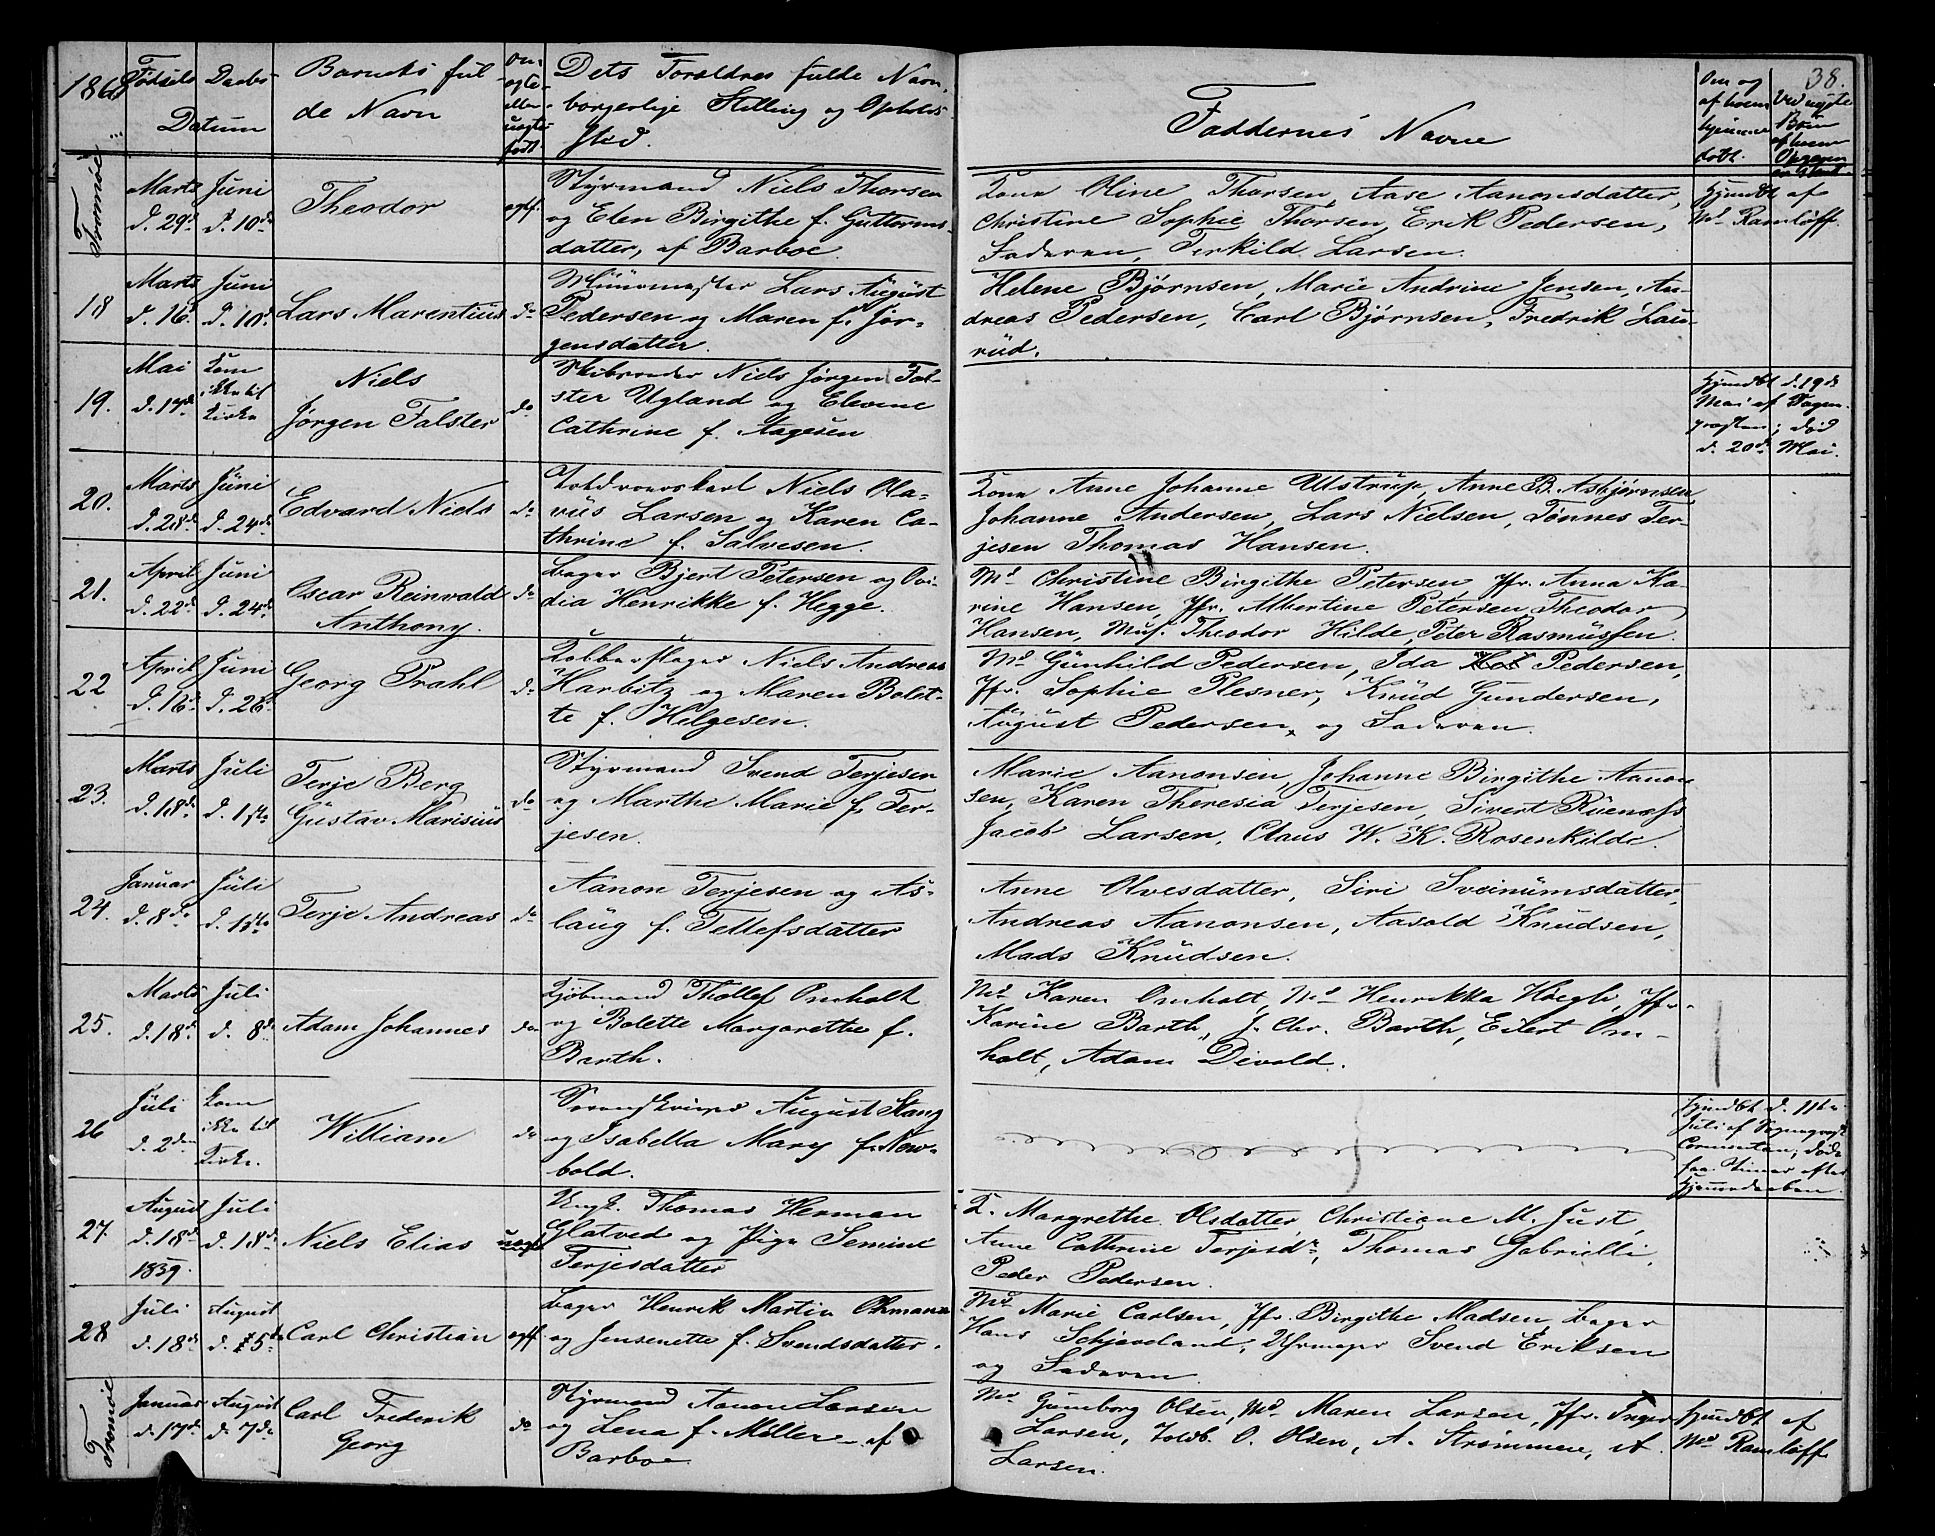 38.
1860 Fødsels Daabs Barnets ful
Datum de Navn
Om
ægte
eller
uægte
født.
Dets Forældres fulde Navn,
borgerlige Stilling og Opholds
sted.
Faddernes Navne
Om og
af hvem
hjemme
døbt.
Ved uægte
Børn
af hvem
Tromøe
Marts Juni
d. 29de d. 10de Theodor ægtf.
Styrmand Niels Thorsen
og Elen Birgithe f. Guttorms-
datter, af Barboe.
Kone Oline Thorsen, Aase Aanonsdatter,
Christine Sophie Thorsen, Erik Pedersen,
Faderen, Terkild Larsen.
Hjemdbt af
Md. Ramløff.
18
Marts Juni
d. 16de d. 10de Lars Marentius do
Muurmester Lars August
Pedersen og Maren f. Jør-
gensdatter.
Helene Bjørnsen, Marie Andrine Jensen, An-
dreas Pedersen, Carl Bjørnsen, Fredrik Lau-
rud.
19.
Mai Kom
d. 17de ikke til
Kirke
Niels
Jørgen Falster do
Skibsreder Niels Jørgen Fal-
ster Ugland og Elevine
Cathrine f. Aagesen
Hjemdbt d. 19de
Mai af Sogne-
præsten; død
d. 20de Mai.
20.
Marts Juni
d. 28de d. 24de Edvard Niels do
Toldroerskarl Niels Ola-
vus Larsen og Karen Ca-
thrine f. Salvesen.
Kone Anne Johanne Ulstrup, Anne B. Asbjørnsen
Johanne Andersen, Lars Nielsen, Tønnes Ter-
jesen Thomas Hansen.
21.
April Juni
d. 22de d. 24de Oscar Reinvald
Anthony. do
Bager Bjert Petersen og Ovi-
dia Henrikke f. Hegge.
Md. Christine Birgithe Petersen, Jfr. Anna Ka-
rine Hansen, Jfr. Albertine Petersen, Theodor
Hansen, Mus. Theodor Hilde, Peter Rasmussen.
22
April Juni
d. 16de d. 26de Georg Prahl do
Kobberslager Niels Andreas
Harbitz og Maren Bolet-
te f. Helgesen.
Md. Gunhild Pedersen, Ida Pedersen,
Jfr. Sophie Plesner, Knud Gundersen,
August Pedersen, og Faderen.
23.
Marts Juli
d. 18de d. 1ste Terje Berg
Gustav Marisius do
Styrmand Svend Terjesen
og Marthe Marie f. Ter-
jesen.
Marie Aanonsen, Johanne Birgithe Aanon
sen, Karen Theresia Terjesen, Sivert Ruenæss
Jacob Larsen, Claus W. K. Rosenkilde.
24.
Januar Juli
d. 8de d. 1ste Terje Andreas do
Aanon Terjesen og As-
laug f. Tellefsdatter
Anne Olvesdatter, Siri Sveinumsdatter,
Andreas Aanonsen, Aasold Knudsen,
Mads Knudsen.
25.
Marts Juli
d. 18de d. 8de Adam Johannes do
Kjøbmand Thollef Omholt
og Bolette Margarethe f.
Barth.
Md. Karen Omholt, Md. Henrikka Høegh, Jfr.
Karine Barth, J. Chr. Barth, Eilert Om-
holt, Adam Devold.
26
Juli Kom
d. 2den ikke til
Kirke.
William do
Sorenskriver August Stang
og Isabella Mary f. New-
bold.
Hjemdbt d. 11te
Juli af Sognepræst
Corneretan; død
faa Timer efter
Hjemmedaaben.
27.
August Juli
d. 18de d. 18de Niels Elias uægt
1859.
Ungk. Thomas Herman
Glatved og Pige Semine
Terjesdatter
K. Margrethe Olsdatter, Christiane M. Just,
Anne Cathrine Terjesdr, Thomas Gabrielli,
Peder Pedersen.
28
Juli August
d. 18de d. 5te Carl Christian ægtf
Bager Henrik Martin Ohmann
og Jensenette f. Svendsdatter.
Md. Marie Carlsen, Jfr. Birgithe Madsen, Bager
Hans Schjeveland, Uhrmager Svend Eriksen
og Faderen.
Tromøe
Januar August
d. 17de d. 7de Carl Frederik
Georg do
Styrmand Aanon Larsen
og Lena f. Møller af
Barboe
Md. Gunborg Olsen, Md. Maren Larsen, Jfr. Inger
Larsen, Toldb. O. Olsen, A. Strømmen, A.
Larsen.
Hjemdbt af
Md. Ramløff